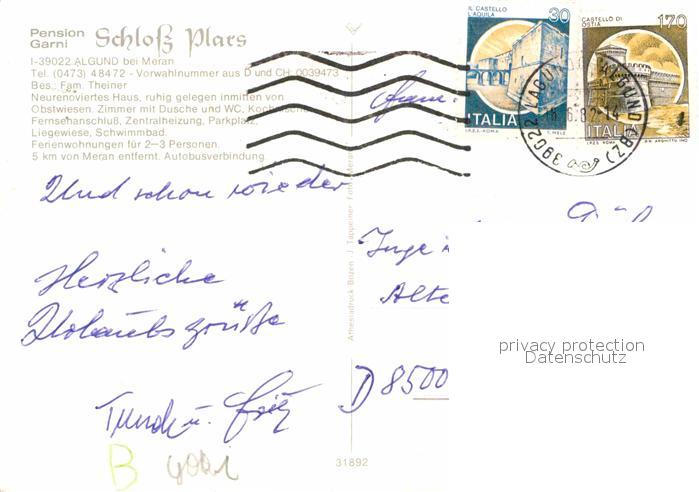 Pension
Garni Schloß Plars
I-39022 ALGUND bei Meran
Tel. (0473) 48472 - Vorwahlnummer aus D und CH 0039473
Bes.: Fam. Theiner
Neurenoviertes Haus, ruhig gelegen inmitten von
Obstwiesen. Zimmer mit Dusche und WC,
Fernsehanschluß, Zentralheizung, Parkplatz,
Liegewiese, Schwimmbad.
Ferienwohnungen für 2–3 Personen.
5 km von Meran entfernt. Autobusverbindung
IL CASTELLO
L'AQUILA
30
ITALIA
I.P.Z.S. ROMA
CASTELLO DI
OSTIA
170
ITALIA
I.P.Z.S. ROMA
39022 LAGUNDO ALGUND (BZ)
Und schon wieder
Herzliche
Urlaubsgrüße
Fritz
Inge
Alte
D 8500
privacy protection
Datenschutz
Athesiadruck Brixen
J. Tappeiner
Meran
31892
B